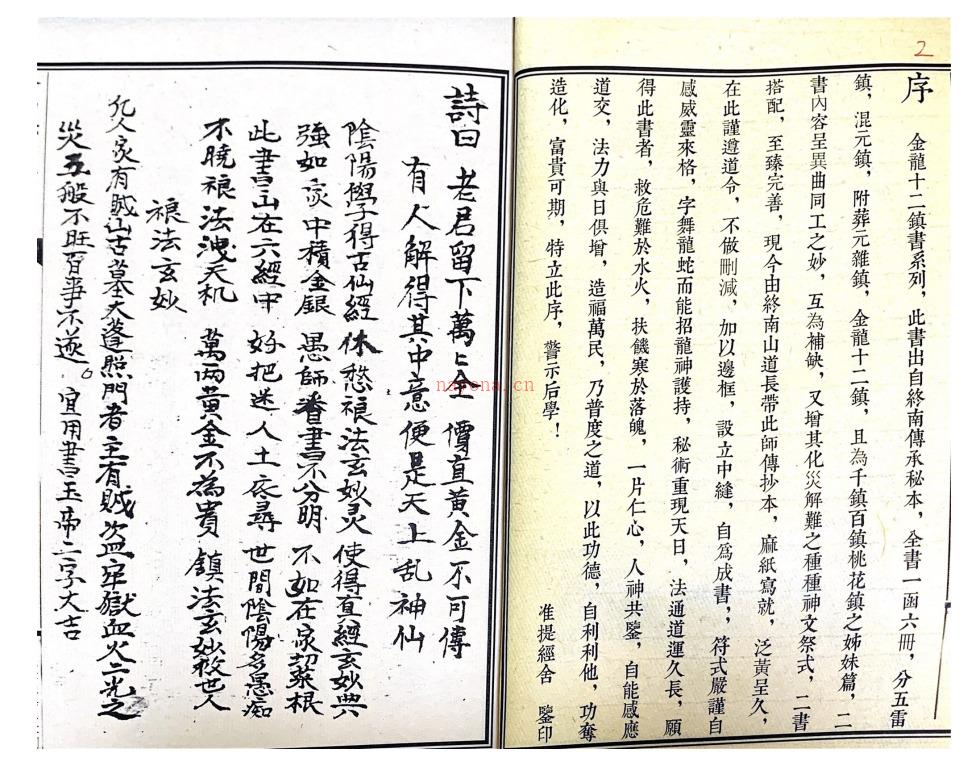 2
序
金龍十二鎮書系列，此書出自終南傳承秘本，全書一函六冊，分五雷
鎮，混元鎮，附葬元雜鎮，金龍十二鎮，且為千鎮百鎮桃花鎮之姊妹篇，二
書內容呈異曲同工之妙，互為補缺，又增其化災解難之種種神文祭式，二書
搭配，至臻完善，現今由終南山道長帶此師傳抄本，麻紙寫就，泛黃呈久，
在此謹遵道令，不做刪減，加以邊框，設立中縫，自爲成書，符式嚴謹自
感威靈來格，字舞龍蛇而能招龍神護持，秘術重現天日，法通道運久長，願
得此書者，救危難於水火，扶饑寒於落魄，一片仁心，人神共鑒，自能感應
道交，法力與日俱增，造福萬民，乃普度之道，以此功德，自利利他，功奪
造化，富貴可期，特立此序，警示后學！
准提經舍 鑒印
詩曰 老君留下萬上全 價直黃金不可傳
有人解得其中意 便是天上乱神仙
陰陽學得古仙經 休愁禳法玄妙灵 使得真經玄妙典
強如家中積金銀 愚師看書不分明 不如在家初葬根
此書出在六經中 好把迷人土底尋 世間陰陽多愚痴
不曉禳法洩天机 萬両黃金不為貴 鎮法玄妙救世人
禳法玄妙
凡人家有賊山古墓天蓬照門者主有賊盗牢獄血火二光之
災五般不旺百事不遂。宜用書玉帝二字大吉
nayona.cn